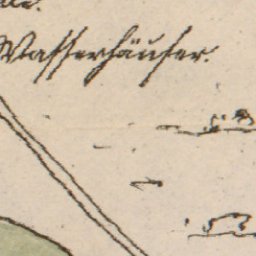 Wasserhäuser.